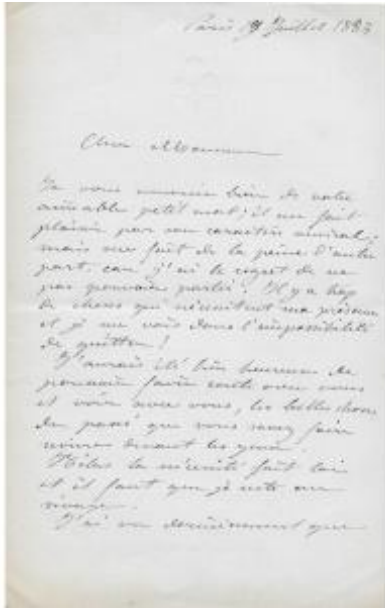 Paris 19 Juillet 1883
Cher Monsieur
Je vous remercie bien de votre
aimable petit mot; il me fait
plaisir par son caractère amical,
mais me fait de la peine d'autre
part, car j'ai le regret de ne
pas pouvoir partir. Il y a trop
de choses qui nécessitent ma présence
et je me vois dans l'impossibilité
de quitter!
J'aurais été bien heureux de
pouvoir faire route avec vous
et voir avec vous, les belles choses
du passé que vous savez faire
revivre devant les yeux.
Hélas la nécessité fait loi
et il faut que je reste au
rivage.
J'ai vu dernièrement que